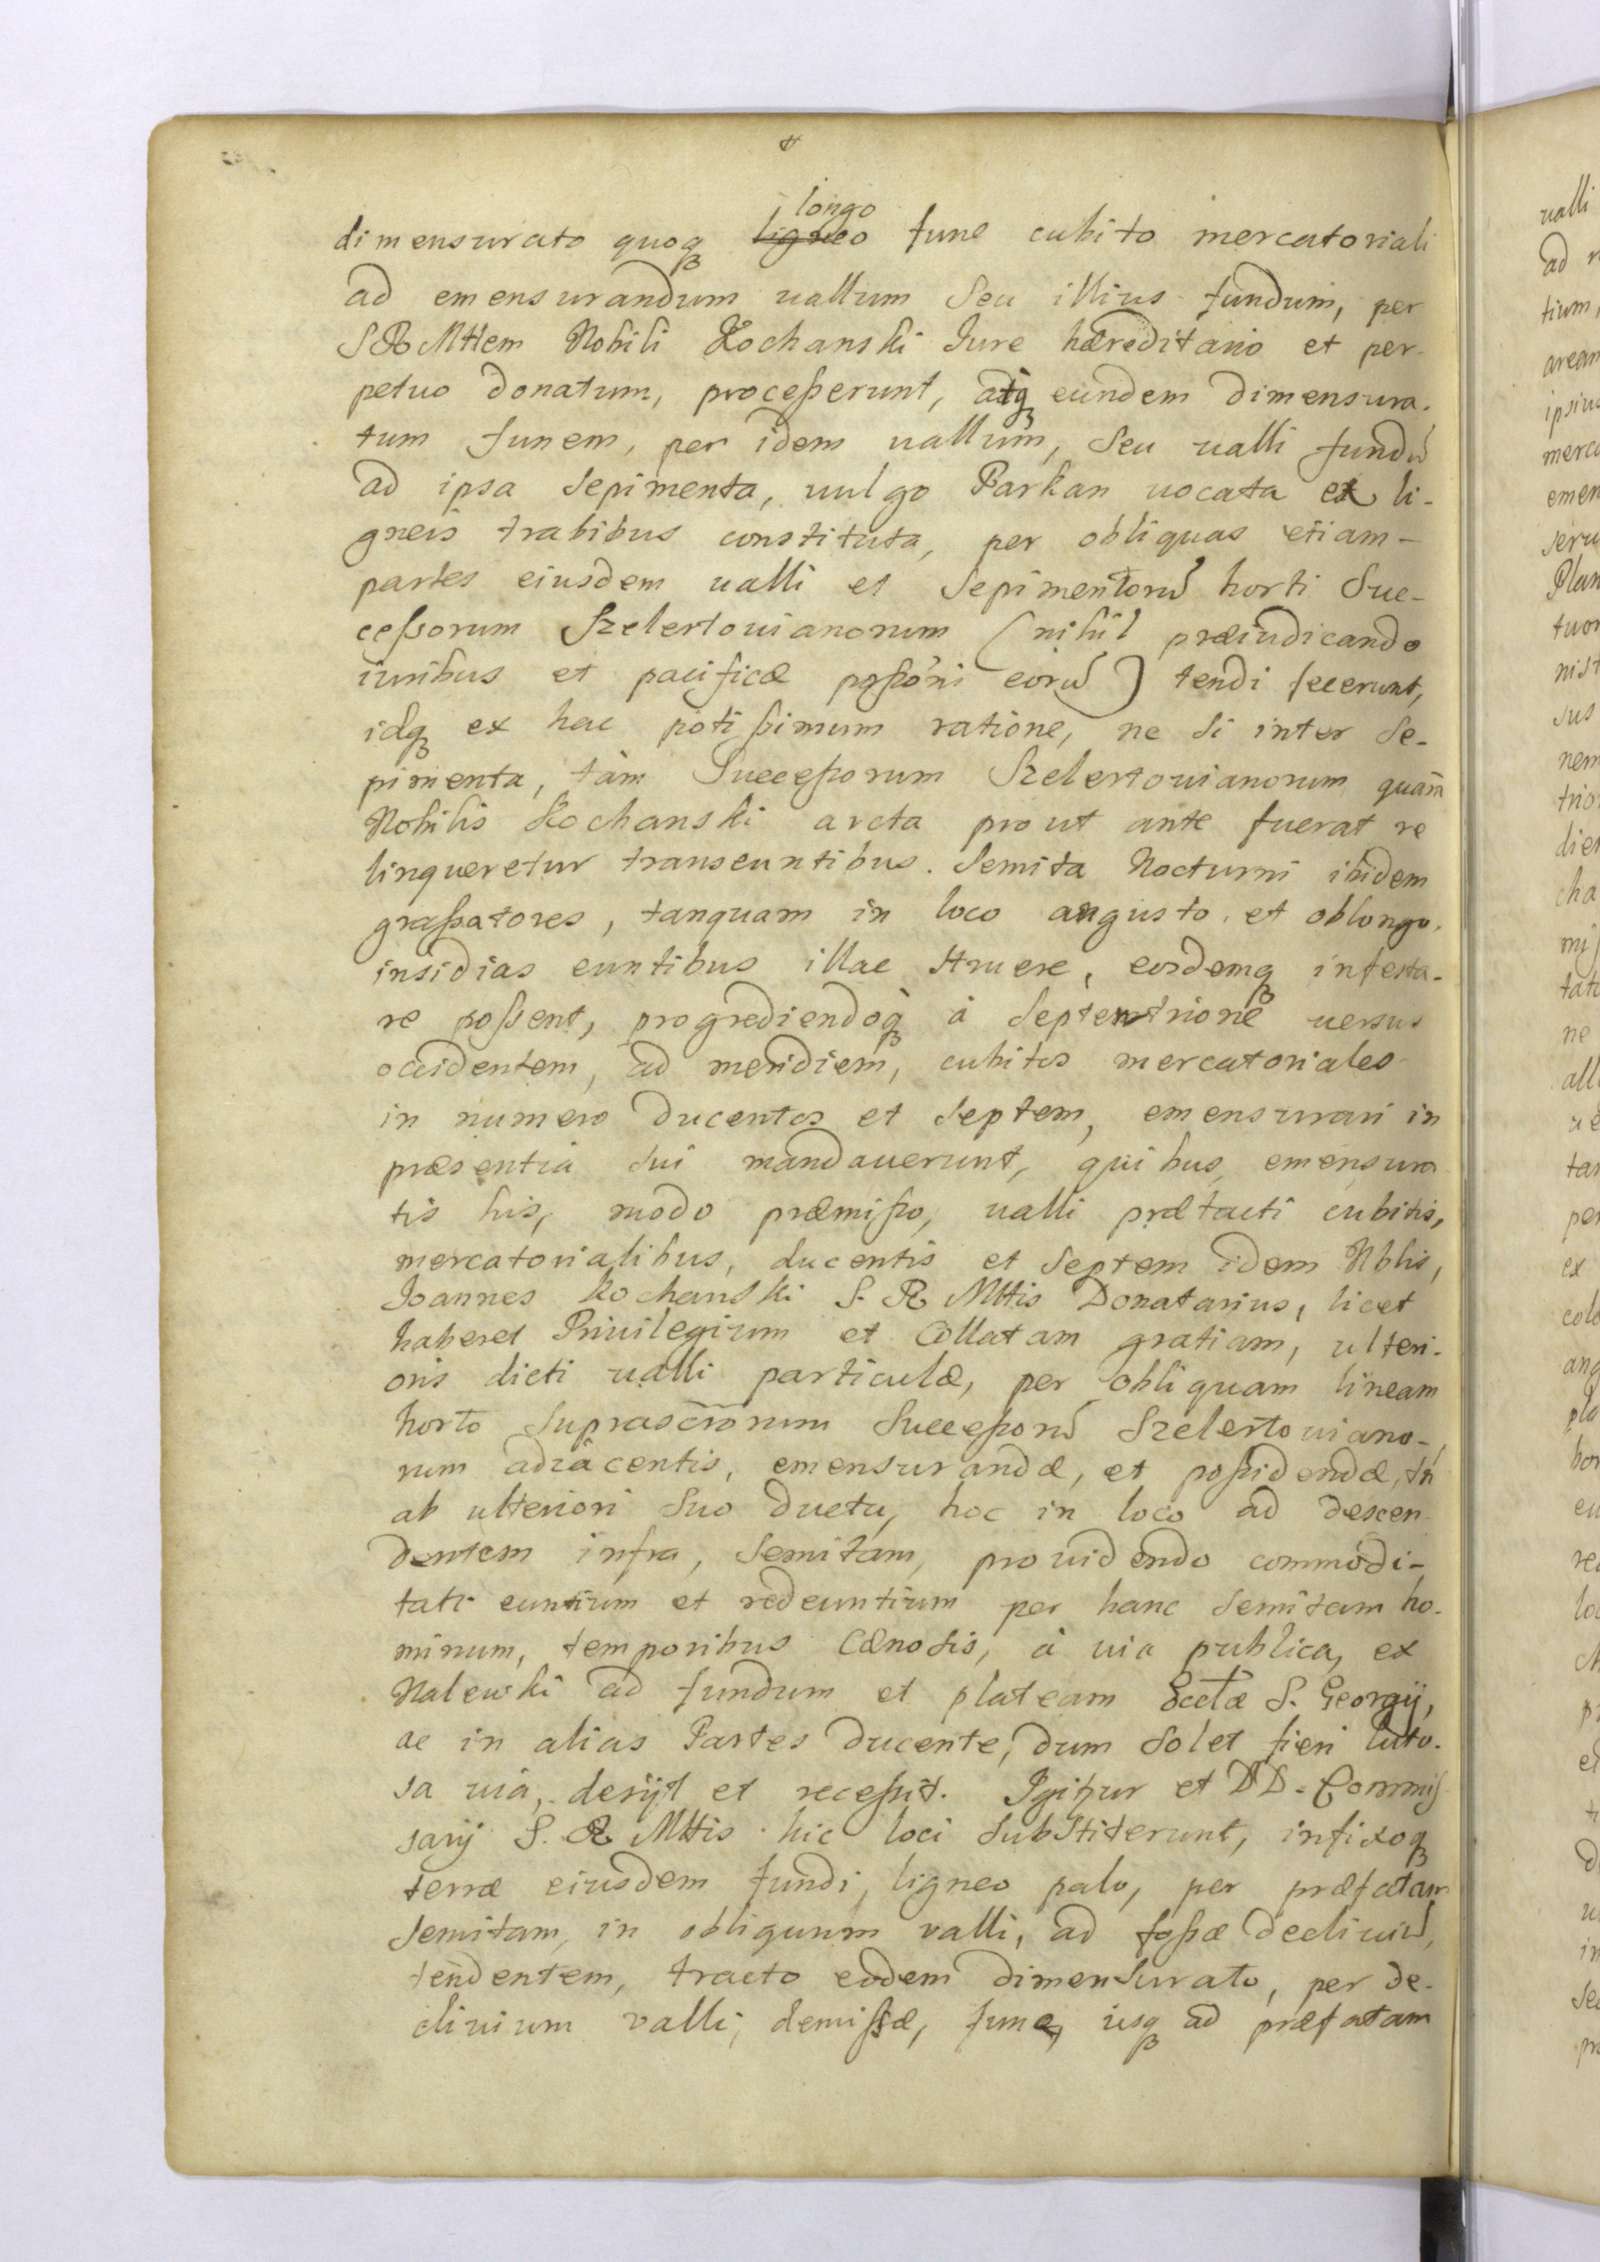 longo
dimensurato quoq ligneo fune cubito mercatoriali
ad emensurandum uallum seu illius fundum, per
SRMttem Nobili Kochanski Iure hæreditario et per-
petuo donatum, proceßerunt, atq eundem dimensura-
tum funem, per idem uallum, seu ualli fundũ
ad ipsa sepimenta, uulgo Parkan uocata ex li-
gneis trabibus constituta, per obliquas etiam-
partes eiusdem ualli et sepimentorũ horti Suc-
ceßorum Szelertouianorum (nihil præiudicando
iuribus et pacificæ poßoni eorũ) tendi fecerunt,
idq ex hac potißimum ratione, ne si inter se-
pimenta, tàm Succeßorum Szelertouianorum quàm
Nobilis Kochanski arcta prout ante fuerat re
linqueretur transeuntibus. semita Nocturni ibidem
graßatores, tanquam in loco angusto et oblongo,
insidias euntibus illac struere, eosdemq infesta-
re poßent, progrediendoq à septentrione uersus
occidentem, ad meridiem, cubitos mercatoriales
in numero ducentos et septem, emensurari in
præsentia sui mandauerunt, quibus emensura
tis his, modo præmißo, ualli prætacti cubitis,
mercatorialibus, ducentis et septem idem Nblis,
Joannes Kochanski S. R Mttis Donatarius, licet
haberet Priuilegium et Collatam gratiam, ulteri-
oris dicti ualli particulæ, per obliquam lineam
horto suprascrorum Succeßorũ Szelertouiano-
rum adiâcentis, emensurandæ, et poßidendæ, tñ
ab ulteriori suo ductu, hoc in loco ad descen-
dentem infra, semitam, prouidendo commodi-
tati euntium et redeuntium per hanc semitam ho-
minum, temporibus Cænosis, à uia publica, ex
Nalewki ad fundum et plateam Ecclæ S. Georgij,
ac in alias Partes ducente, dum solet fieri luto-
sa uia, desijt et receßit. Igitur et DD. Commiß
sarij S. R Mttis hic loci substiterunt, infixoq
terræ eiusdem fundi, ligneo palo, per præfatam
semitam, in obliquum valli, ad foßæ decliuiũ,
tendentem, tracto eodem dimensurato, per de-
cliuium valli, demißæ, fune, usq ad præfatam